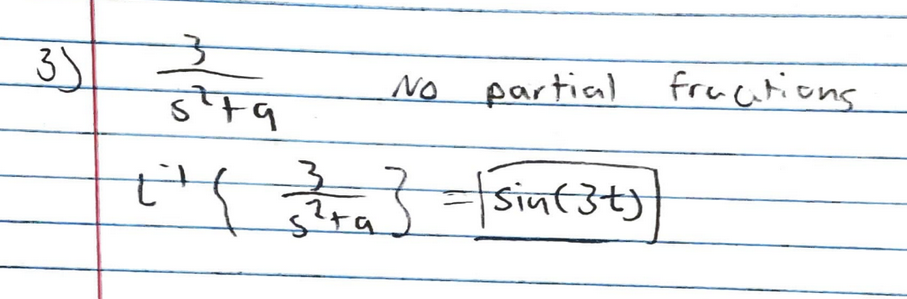 3) 3/(s²+9) No partial fractions
L⁻¹{3/(s²+9)} = sin(3t)